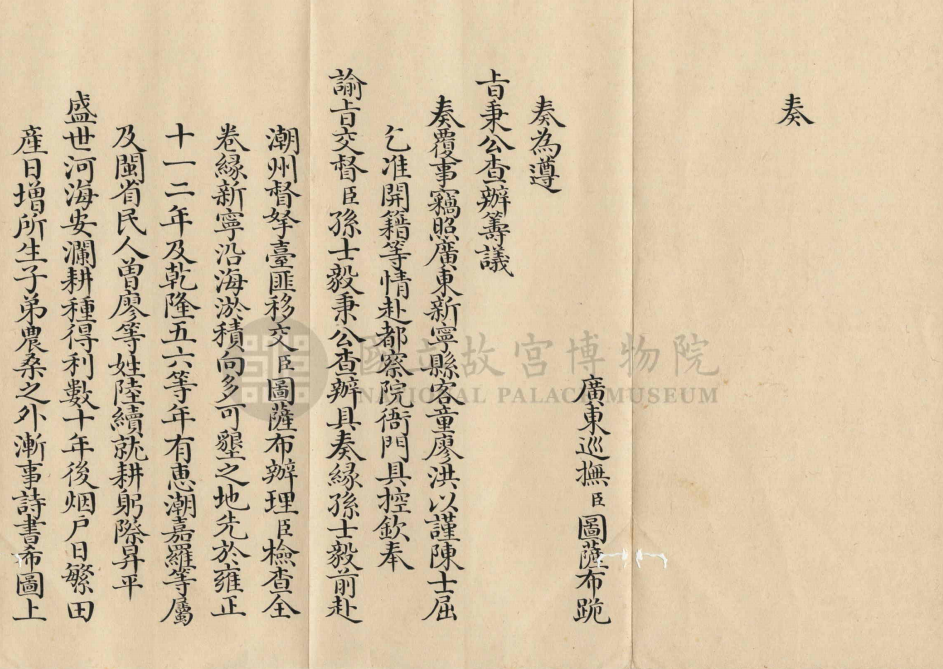 奏
廣東巡撫臣圖薩布跪
奏為遵
旨秉公查辦籌議
奏覆事竊照廣東新寧縣客童廖洪以謹陳士屈
乞准開籍等情赴都察院衙門具控欽奉
諭旨交督臣孫士毅秉公查辦具奏緣孫士毅前赴
潮州督拏臺匪移交臣圖薩布辦理臣檢查全
卷緣新寧沿海淤積向多可墾之地先於雍正
十一二年及乾隆五六等年有惠潮嘉羅等屬
及閩省民人曾廖等姓陸續就耕躬際昇平
盛世河海安瀾耕種得利數十年後烟户日繁田
產日增所生子弟農桑之外漸事詩書希圖上
國立故宮博物院
NATIONAL PALACE MUSEUM